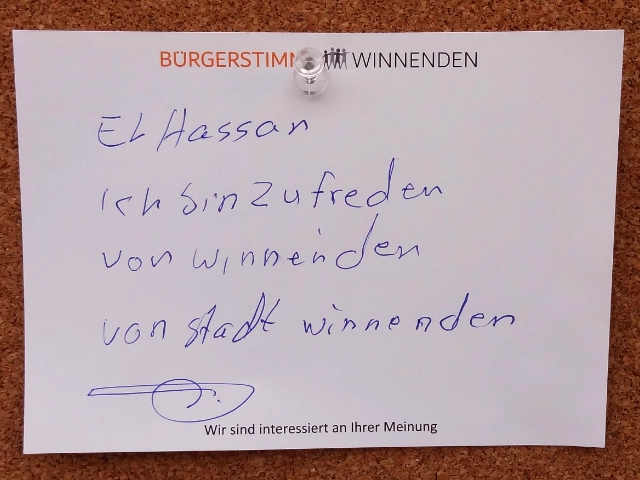 BÜRGERSTIMM WINNENDEN
El Hassan
Ich bin zufreden
von winnenden
von stadt winnenden
Wir sind interessiert an Ihrer Meinung